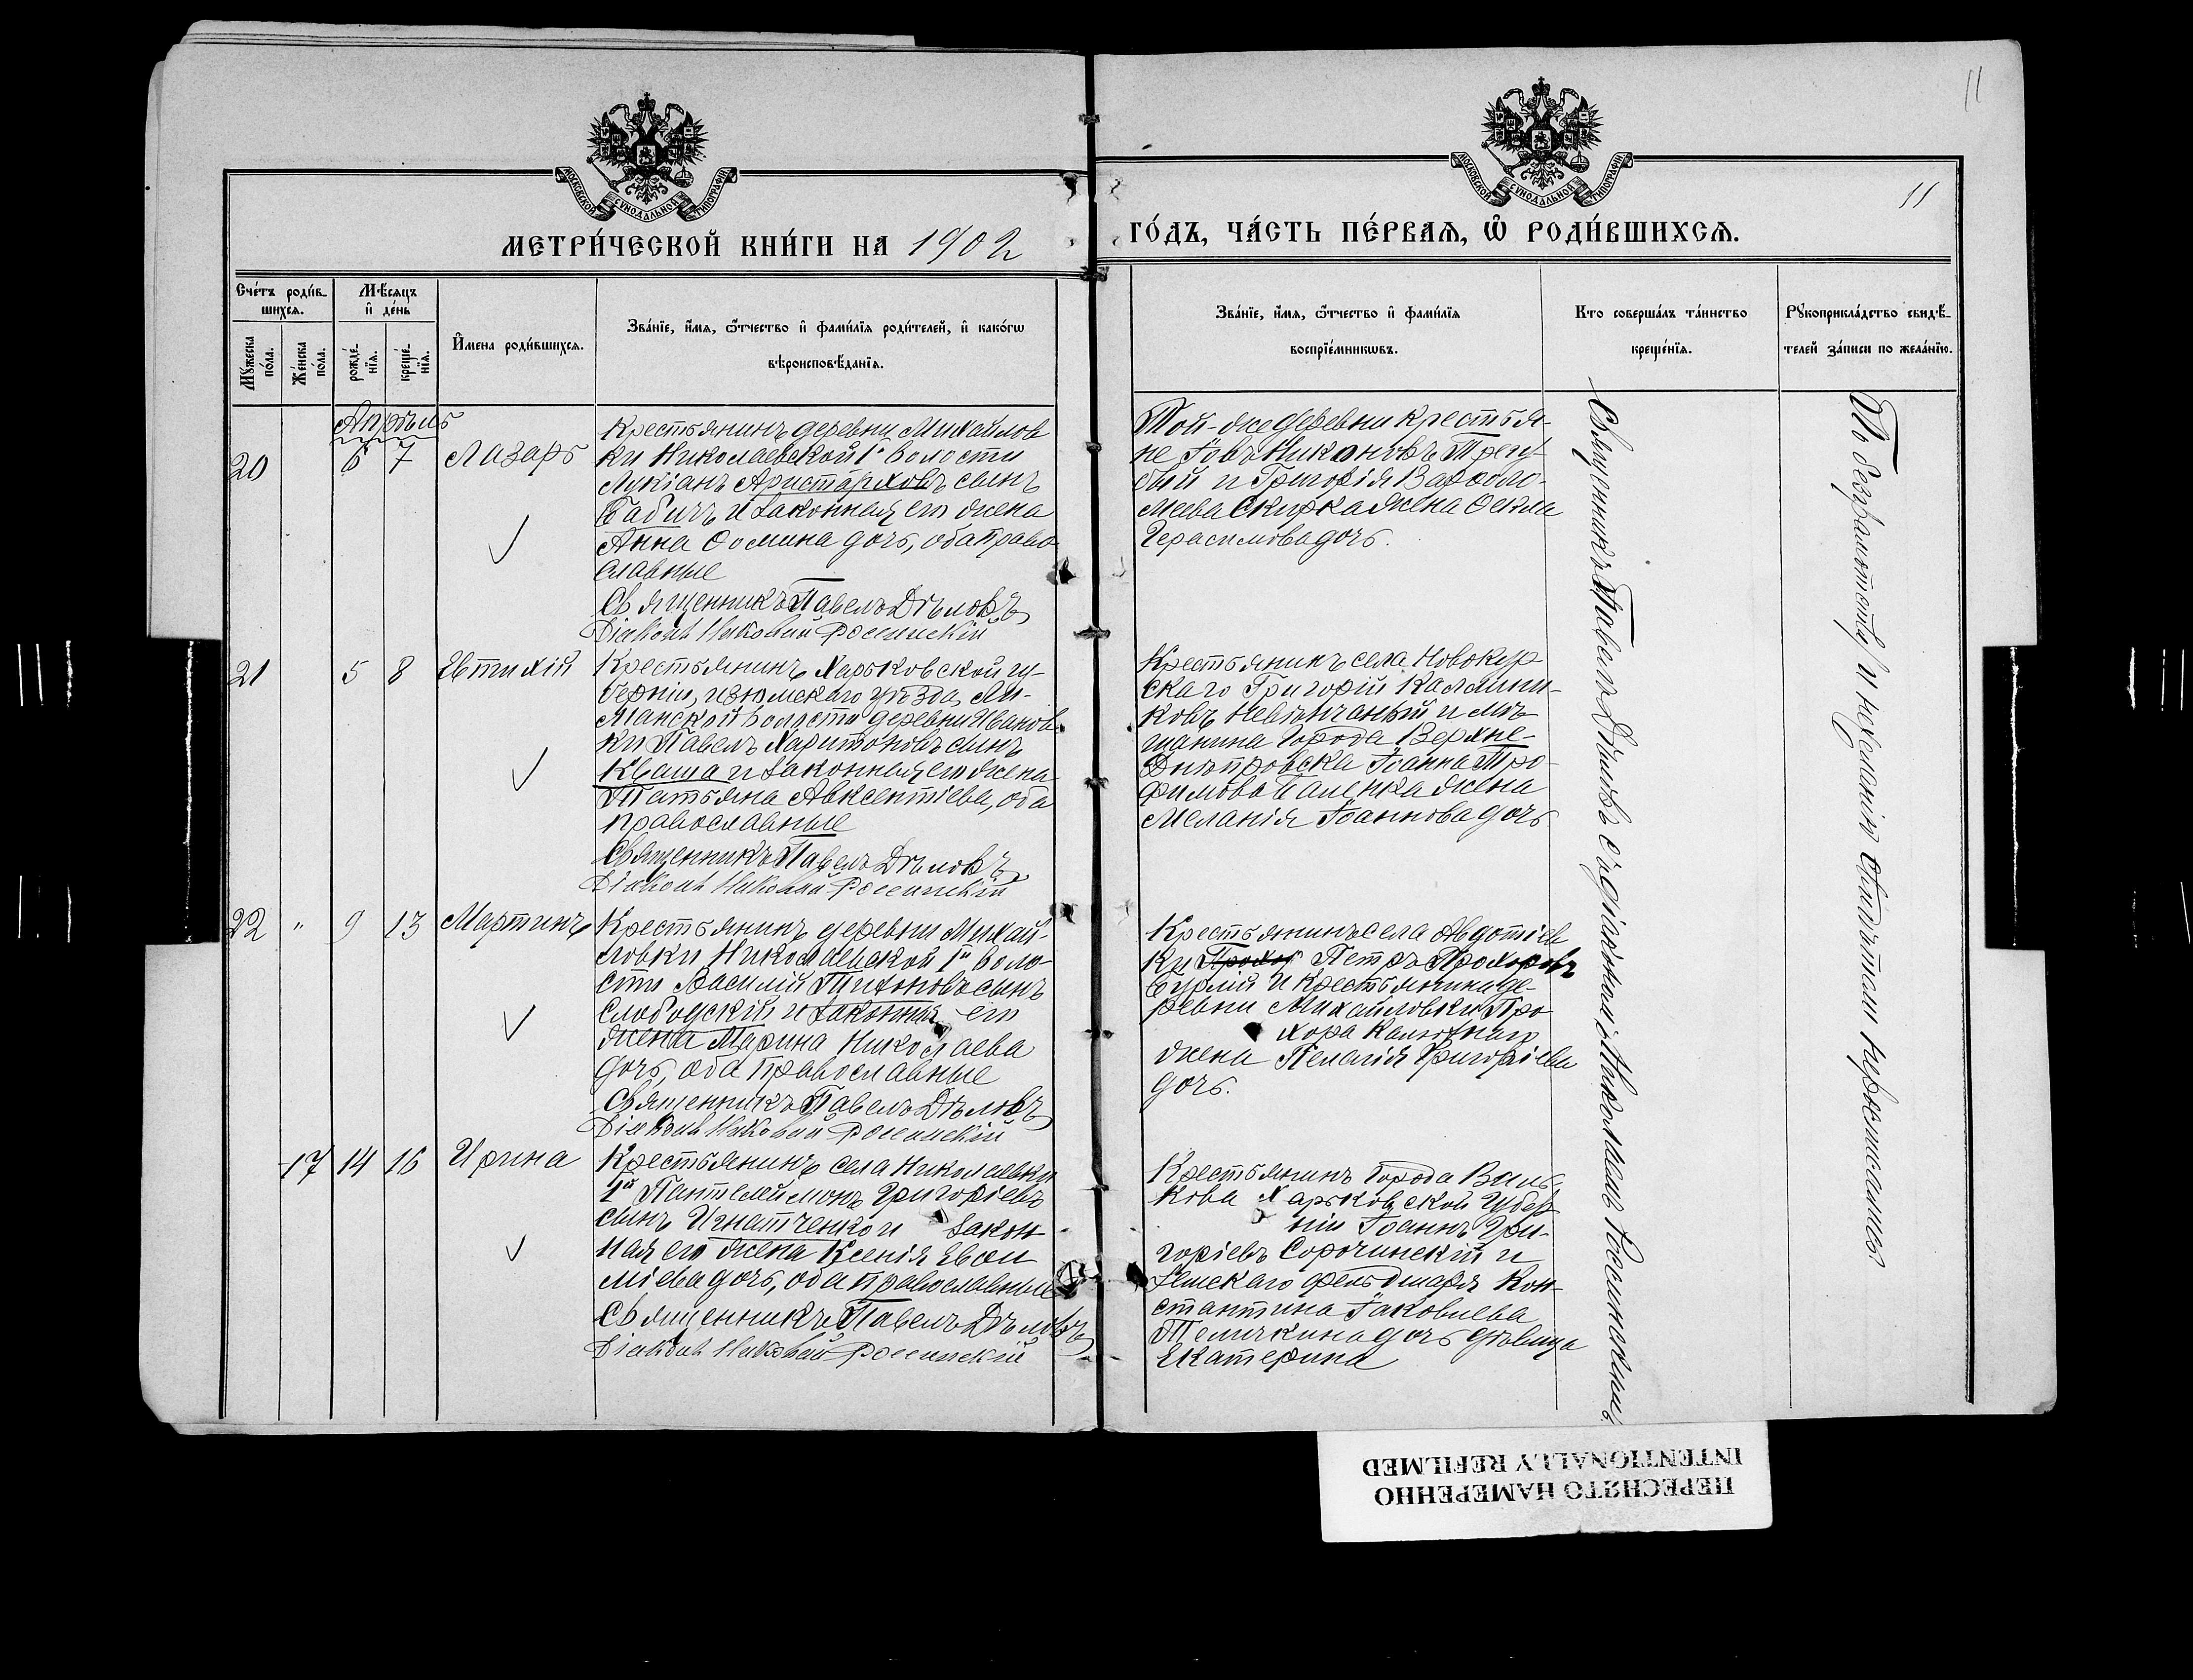 11
11
МОСКОВСКОЙ СѴНОДАЛЬНОЙ ТИПОГРАФІИ
МОСКОВСКОЙ СѴНОДАЛЬНОЙ ТИПОГРАФІИ
МЕТРИ́ЧЕСКОЙ КНИ́ГИ НА 1902
ГО́ДЪ, ЧА́СТЬ ПЕ́РВАЯ, Ѽ РОДИ́ВШИХСЯ.
Сче́тъ роди́в-
шихся.
Мꙋ́жеска
по́ла.
Же́нска
по́ла.
Мѣ́сяцъ
и҆ де́нь
рожде́-
нїя.
креще́-
нїя.
И҆́мена роди́вшихся.
Зва́нїе, и҆́мя, ѻ҆́тчество и҆ фами́лїя роди́телей, и҆ како́гѡ
вѣроисповѣ́данїя.
Зва́нїе, и҆́мя, ѻ҆́тчество и҆ фами́лїя
воспрїе́мникѡвъ.
Кто соверша́лъ та́инство
креще́нїя.
Рꙋкоприкла́дство свидѣ́-
телей за́писи по жела́нїю.
Апрѣль
20 6 7 Лазарь
Крестьянинъ деревни Михайлов
ки Николаевской 1й волости
Лукіанъ Аристарховъ сынъ
Бабичъ и законная его жена
Анна Ѳомина дочь, оба право
славные
Священникъ Павелъ Дѣловъ
Діаконъ Николай Росинскій
Той-же деревни крестья-
не Іовъ Никоновъ Трегу
бый и Григорія Варѳоло-
меева Скирка жена Ѳекла
Герасимова дочь.
21 5 8 Евтихій
Крестьянинъ Харьковской гу-
берніи, изюмскаго уѣзда, Ли-
манской волости деревни Иванов
ки Павелъ Харитоновъ сынъ
Кваша и законная его жена
Татьяна Авксентіева, оба
православные
Священникъ Павелъ Дѣловъ
Діаконъ Николай Росинскій
Крестьянинъ села Новокур
скаго Григорій Калашни-
ковъ невѣнчаный и мѣ
щанина города Верхне-
Днѣпровска Іоанна Тро-
фимова жена
Меланія Іоаннова дочь
22 " 9 13 Мартинъ
Крестьянинъ деревни Михай-
ловки Николаевской 1й воло-
сти Василій Тихоновъ сынъ
Слободскій и законная его
жена Марина Николаева
дочь, оба православные
Священникъ Павелъ Дѣловъ
Діаконъ Николай Росинскій
Крестьянинъ села Авдотіев
ки Прохор Петръ Прохоровъ
Бурлій и крестьянина де-
ревни Михайловки Про
хора
жена Пелагія Григоріева
дочь.
17 14 16 Ирина
Крестьянинъ села Николаевки
1й Пантелеймонъ Григоріевъ
сынъ Игнатченко и закон
ная его жена Ксенія Евѳи
міева дочь, оба православные
Священникъ Павелъ Дѣловъ
Діаконъ Николай Росинскій
Крестьянинъ города Валь-
кова Харьковской губер
ніи Іоаннъ Гри-
горіевъ Сорочинскій и
земскаго фельдшера Кон
стантина Іаковлева
Теличкина дочь дѣвица
Екатерина
Священникъ Павелъ Дѣловъ съ діакономъ Николаемъ Росинскимъ
По безграмотству и нежеланію свидѣтели
ПЕРЕСНЯТО НАМЕРЕННО
INTENTIONALLY REFILMED